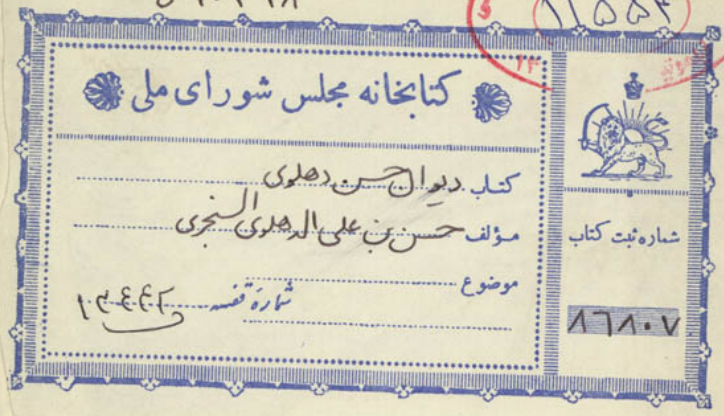 ۱۱۵۵۴
کتابخانه مجلس شورای ملی
کتاب دیوان حسن دهلوی
مؤلف حسن بن علی الدهلوی السنجری
موضوع
شماره قفسه ۱۳۴۴۲
شماره ثبت کتاب
۸۶۸۰۷
۱۴